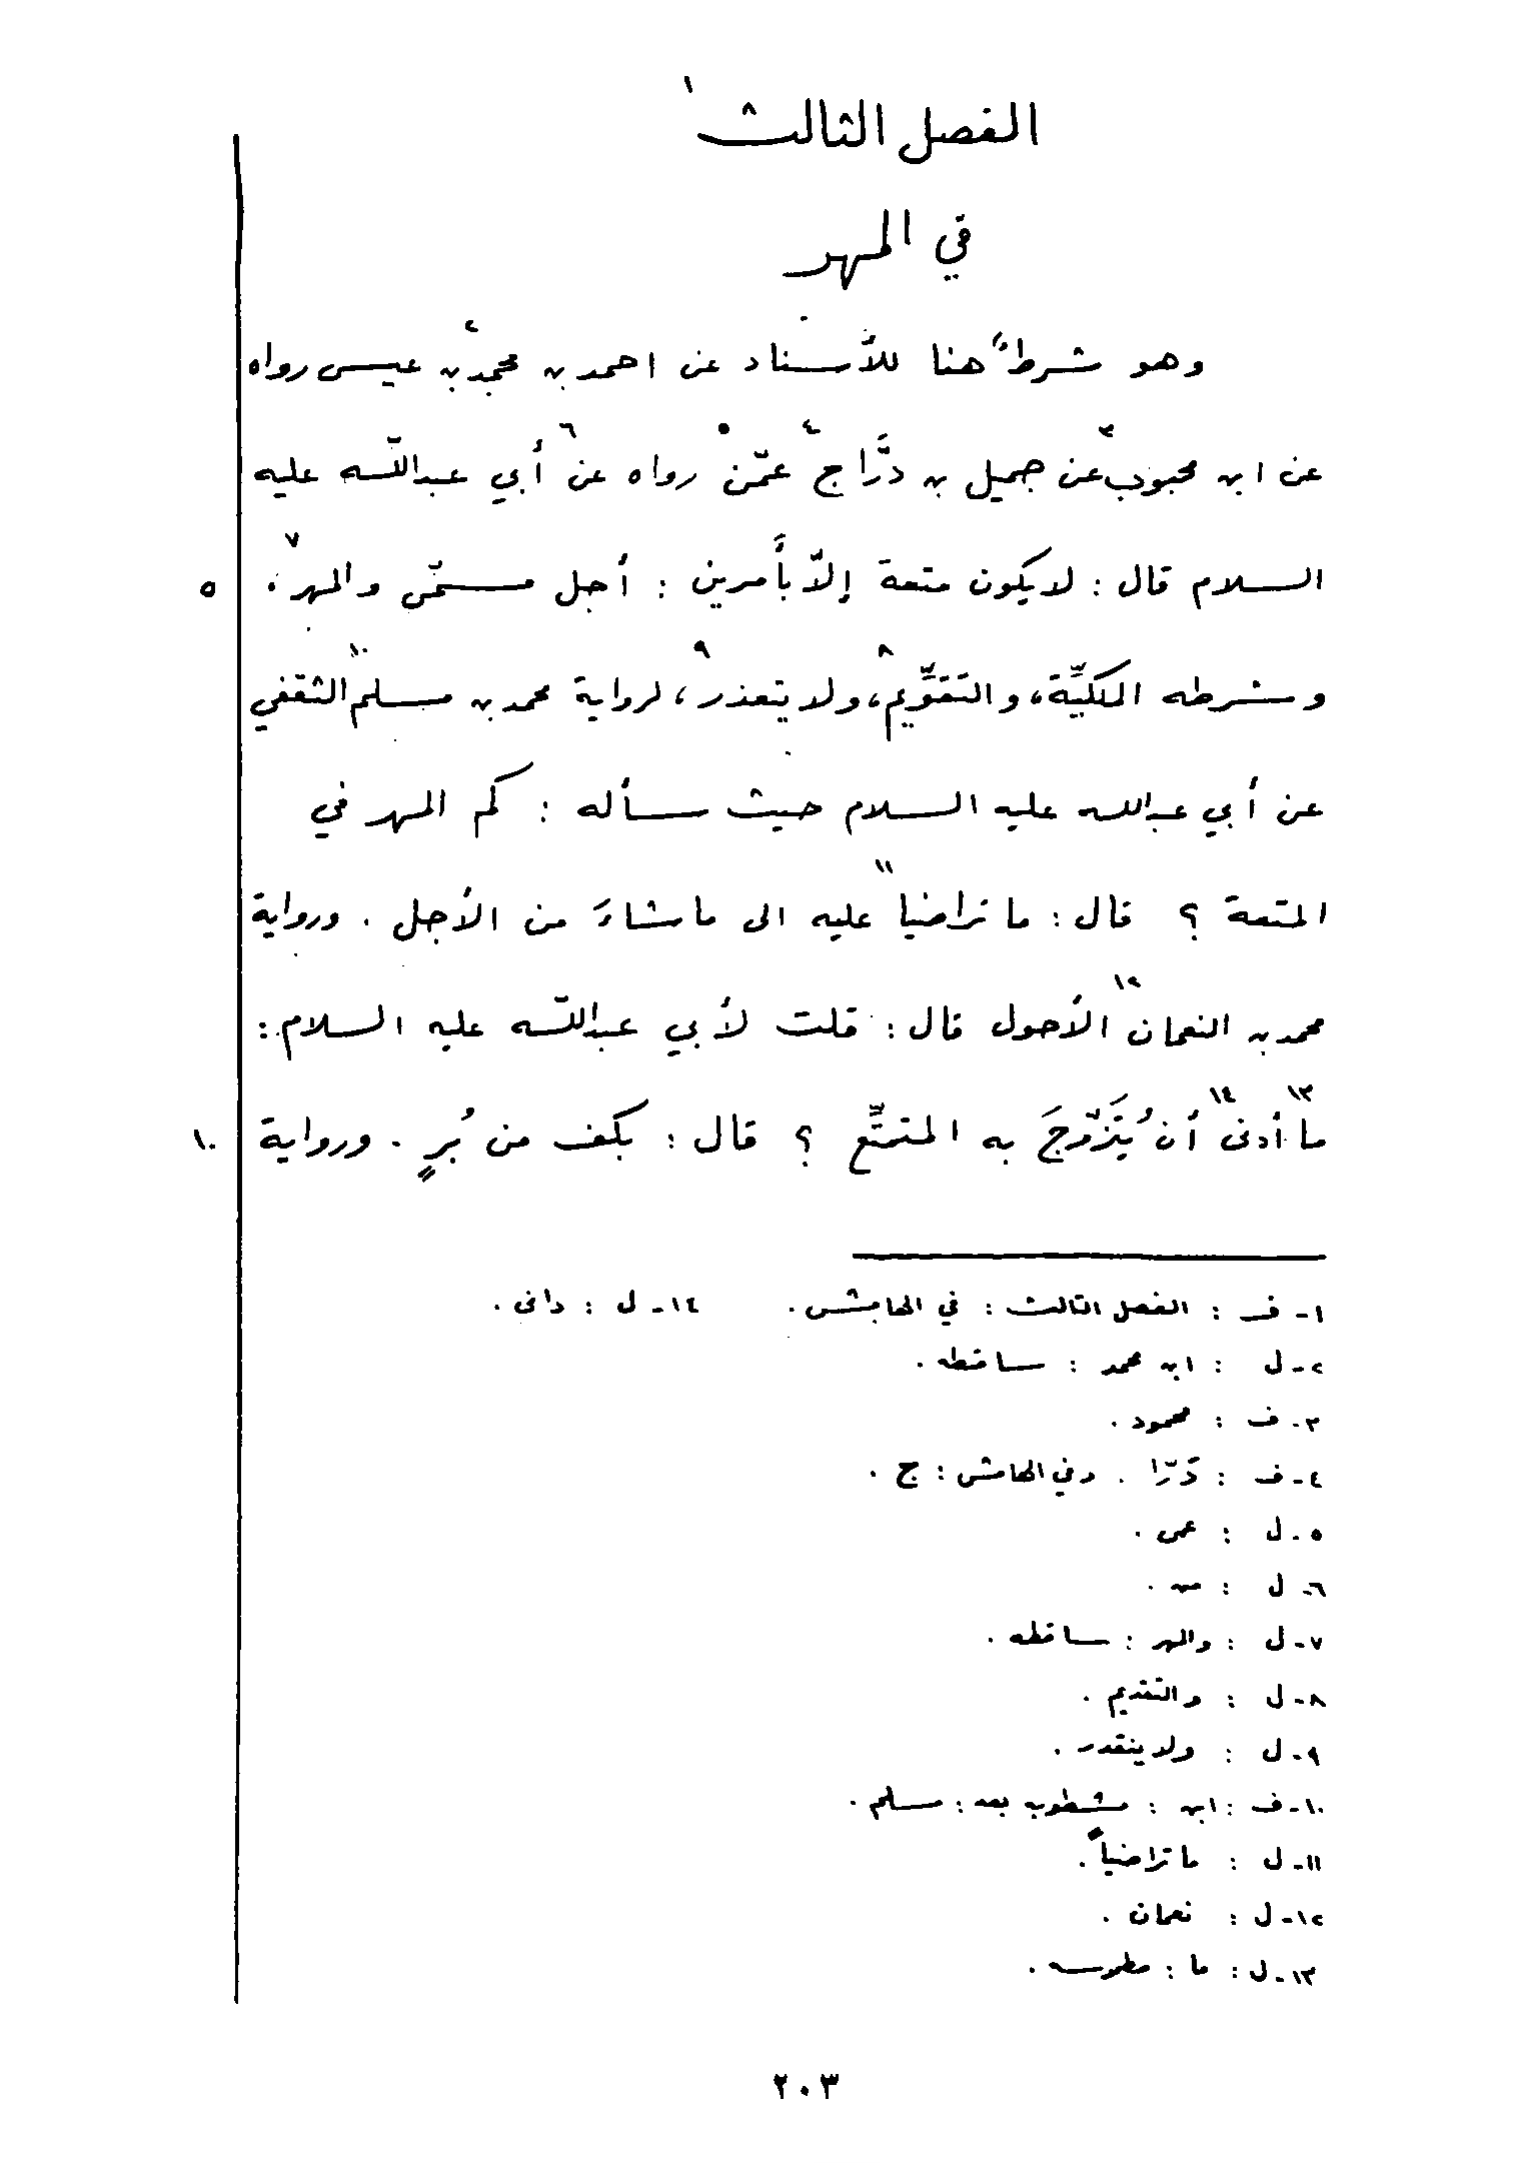 الفصل الثالث ١
في المهر
وهو شرطٌ هنا للأسناد عن احمد بن محمد ٢ بن عيسى رواه
عن ابن محبوب ٣ عن جميل بن درَّاج ٤ عمّن ٥ رواه عن ٦ أبي عبد اللّه عليه
السلام قال : لا يكون متعة إلاّ بأَمرين : أجل مسمّى والمهر ٧ ،
٥
وشرطه الملكيِّة ، والتَقوِّيم ٨ ، ولا يتعذر ٩ ، لرواية محمد بن مسلم ١٠ الثقفي
عن أبي عبد الله عليه السلام حيث سأله : كم المهر في
المتعة ؟ قال : ما تراضيا ١١ عليه الى ما شاءَ من الأجل . ورواية
محمد بن النعمان ١٢ الأحول قال : قلت لأبي عبد اللّه عليه السلام :
ما ١٣ أدنى ١٤ أن يُتَزَوّجَ به المتمتِّع ؟ قال : بكف من بُرٍ . ورواية
١٠
١ - ف : الفصل الثالث : في الهامش .
٢ - ل : ابن محمد : ساقطه .
٣ - ف : محمود .
٤ - ف : دَرّا . وفي الهامش : ج .
٥ - ل : عمى .
٦ - ل : من .
٧ - ل : والمهر : ساقطه .
٨ - ل : والتقديم .
٩ - ل : ولا ينقدر .
١٠ - ف : ابن : مشطوب بعد : مسلم .
١١ - ل : ما تراضياً .
١٢ - ل : نعمان .
١٣ - ل : ما : مطموسه .
١٤ - ل : دانى .
٢٠٣